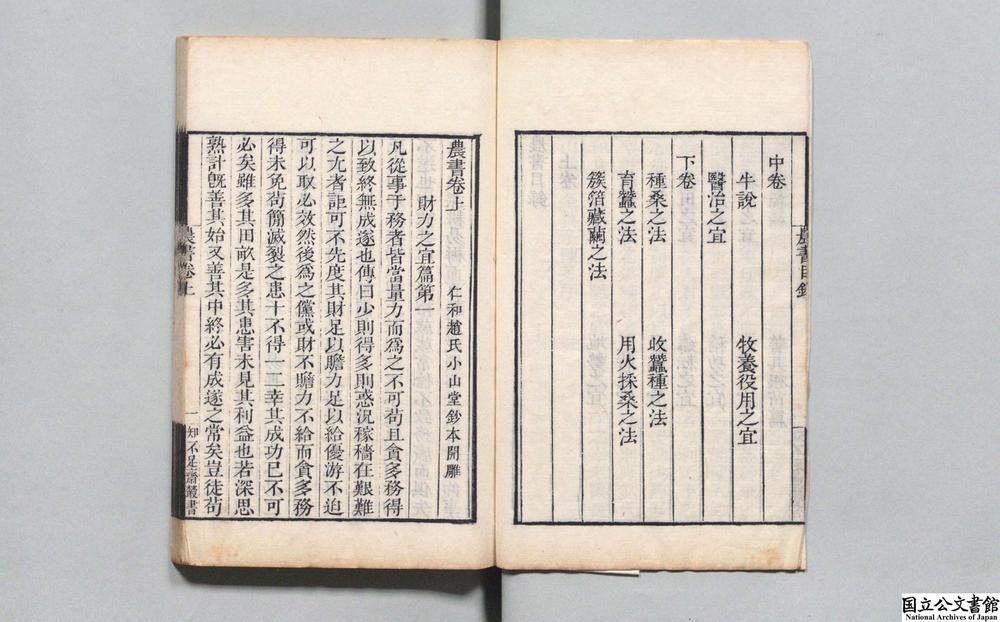 農書目錄
中卷
牛說　牧養役用之宜
醫治之宜
下卷
種桑之法　收蠶種之法
育蠶之法　用火採桑之法
簇箔藏繭之法
農書卷上　仁和趙氏小山堂鈔本開雕
財力之宜篇第一
凡從事于務者皆當量力而爲之不可苟且貪多務得
以致終無成遂也傳曰少則得多則惑況稼穡在艱難
之尤者詎可不先度其財足以贍力足以給優游不迫
可以取必效然後爲之儻或財不贍力不給而貪多務
得未免苟簡滅裂之患十不得一二幸其成功已不可
必矣雖多其田畝是多其患害未見其利益也若深思
熟計旣善其始又善其中終必有成遂之常矣豈徒苟
農書卷上　一　知不足齋叢書
国立公文書館
National Archives of Japan